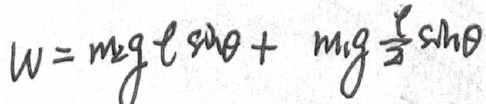 W = m₂gℓ sinθ + m₁g ℓ/2 sinθ